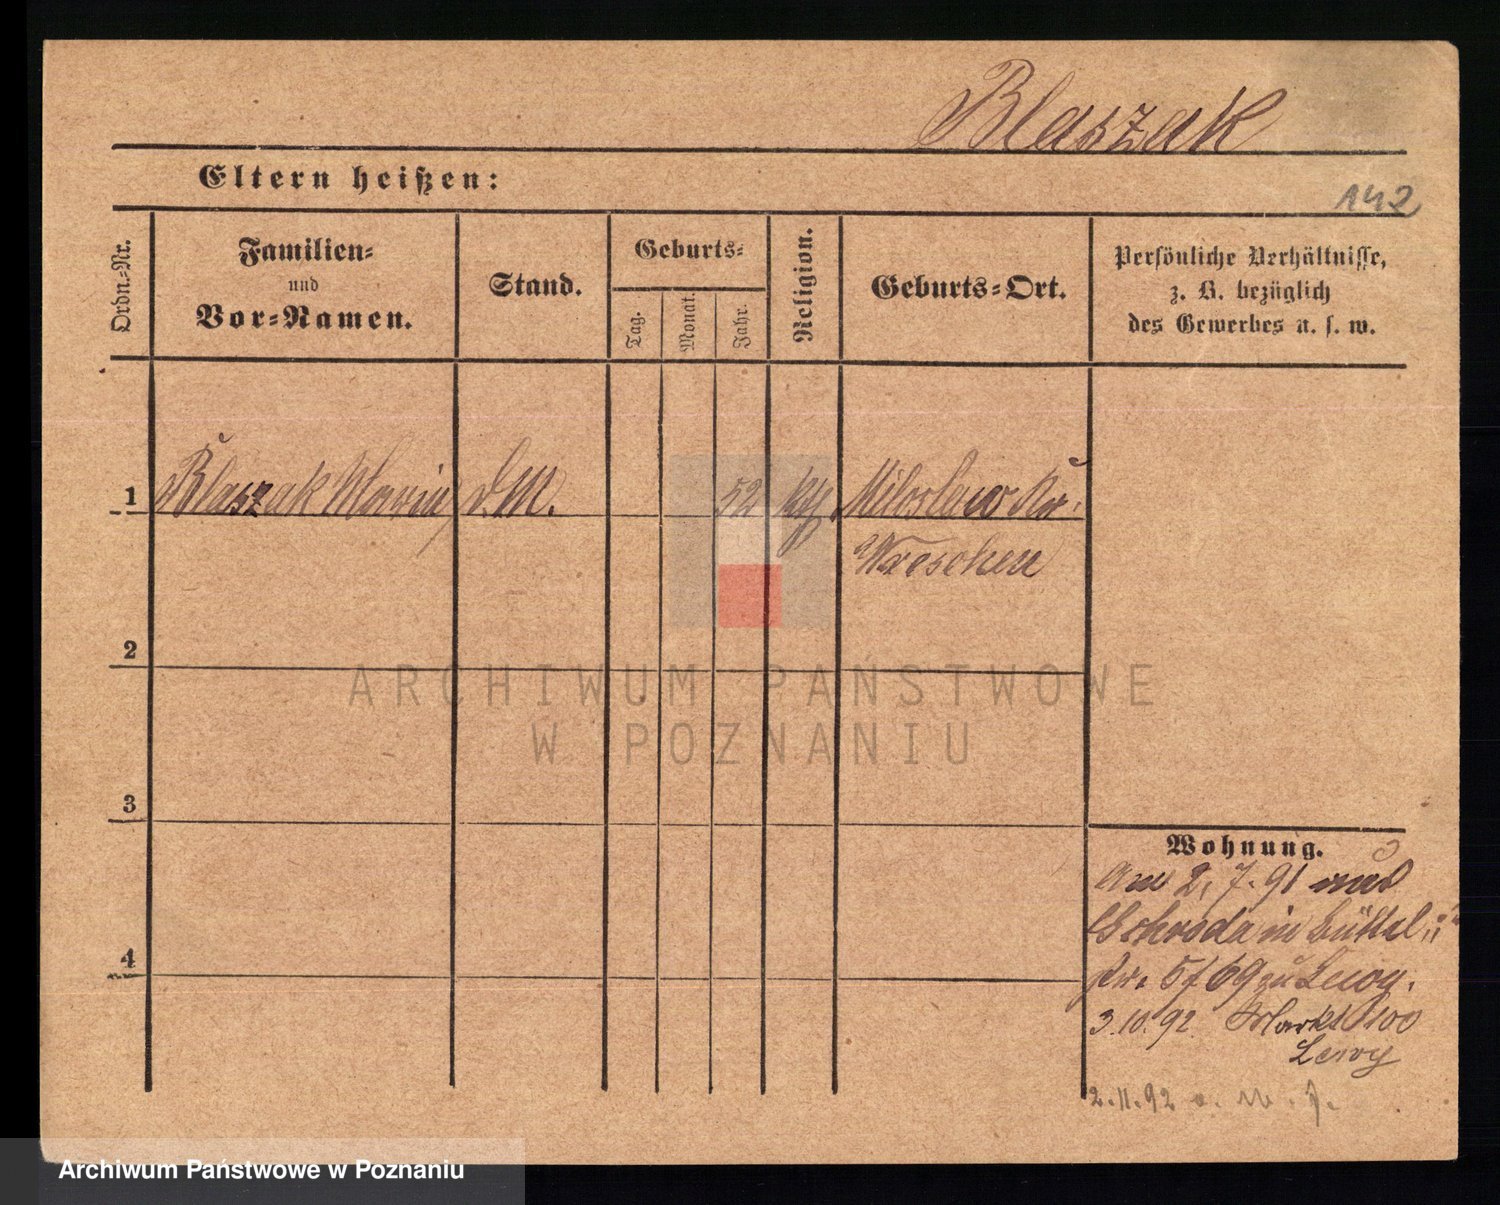 Blaszak
Eltern heißen:
142
Ordn.-Nr.
Familien-
und
Vor-Namen.
Stand.
Geburts-
Tag.
Monat.
Jahr.
Religion.
Geburts-Ort.
Persönliche Verhältnisse,
z. B. bezüglich
des Gewerbes u. s. w.
1 Blaszak Marie d. M. 52 Kth Miloslaw Kr.
Wreschen
2
3
4
Wohnung.
Am 2. 7. 91 aus
Schroda in Büttel
Str. 5/69 zu Lewy.
3.10.92 Markt 100
Lewy
2.11.92
ARCHIWUM PAŃSTWOWE
W POZNANIU
Archiwum Państwowe w Poznaniu